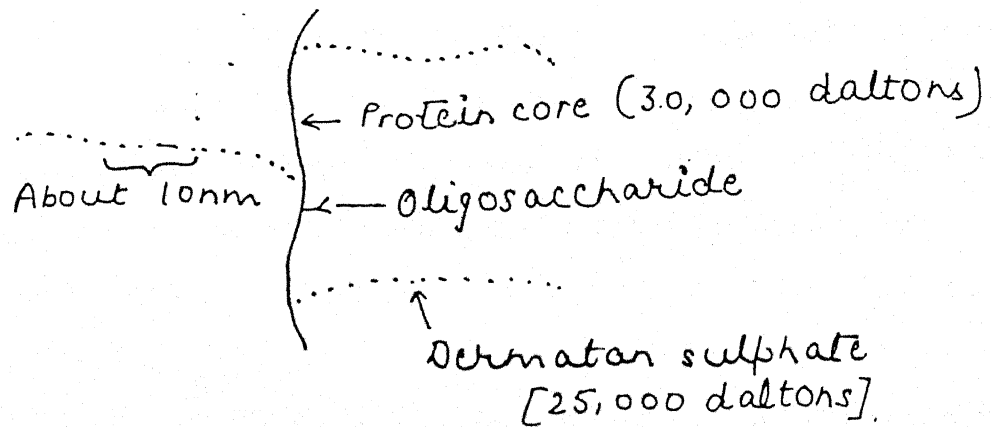 ← Protein core (30,000 daltons)
About 10nm
← Oligosaccharide
Dermatan sulphate
[25,000 daltons].